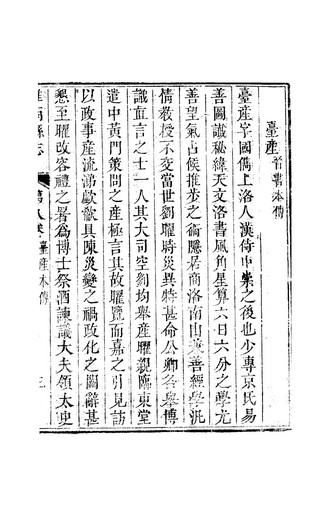 臺產晉書本傳
臺產字國儁上洛人漢侍中崇之後也少專京氏易
善圖讖秘緯天文洛書風角星算六日六分之學尤
善望氣占候推步之術隱居商洛南山兼善經學汎
情教授不交當世劉曜時災異特甚命公卿各舉博
識直言之士一人其大司空劉均舉產曜親臨東堂
遣中黃門策問之產極言其故曜覽而嘉之引見訪
以政事產流涕歔欷具陳災變之禍政化之闕辭甚
懇至曜改容禮之署為博士祭酒諫議大夫領太史
雒南縣志
卷八 臺產本傳
三